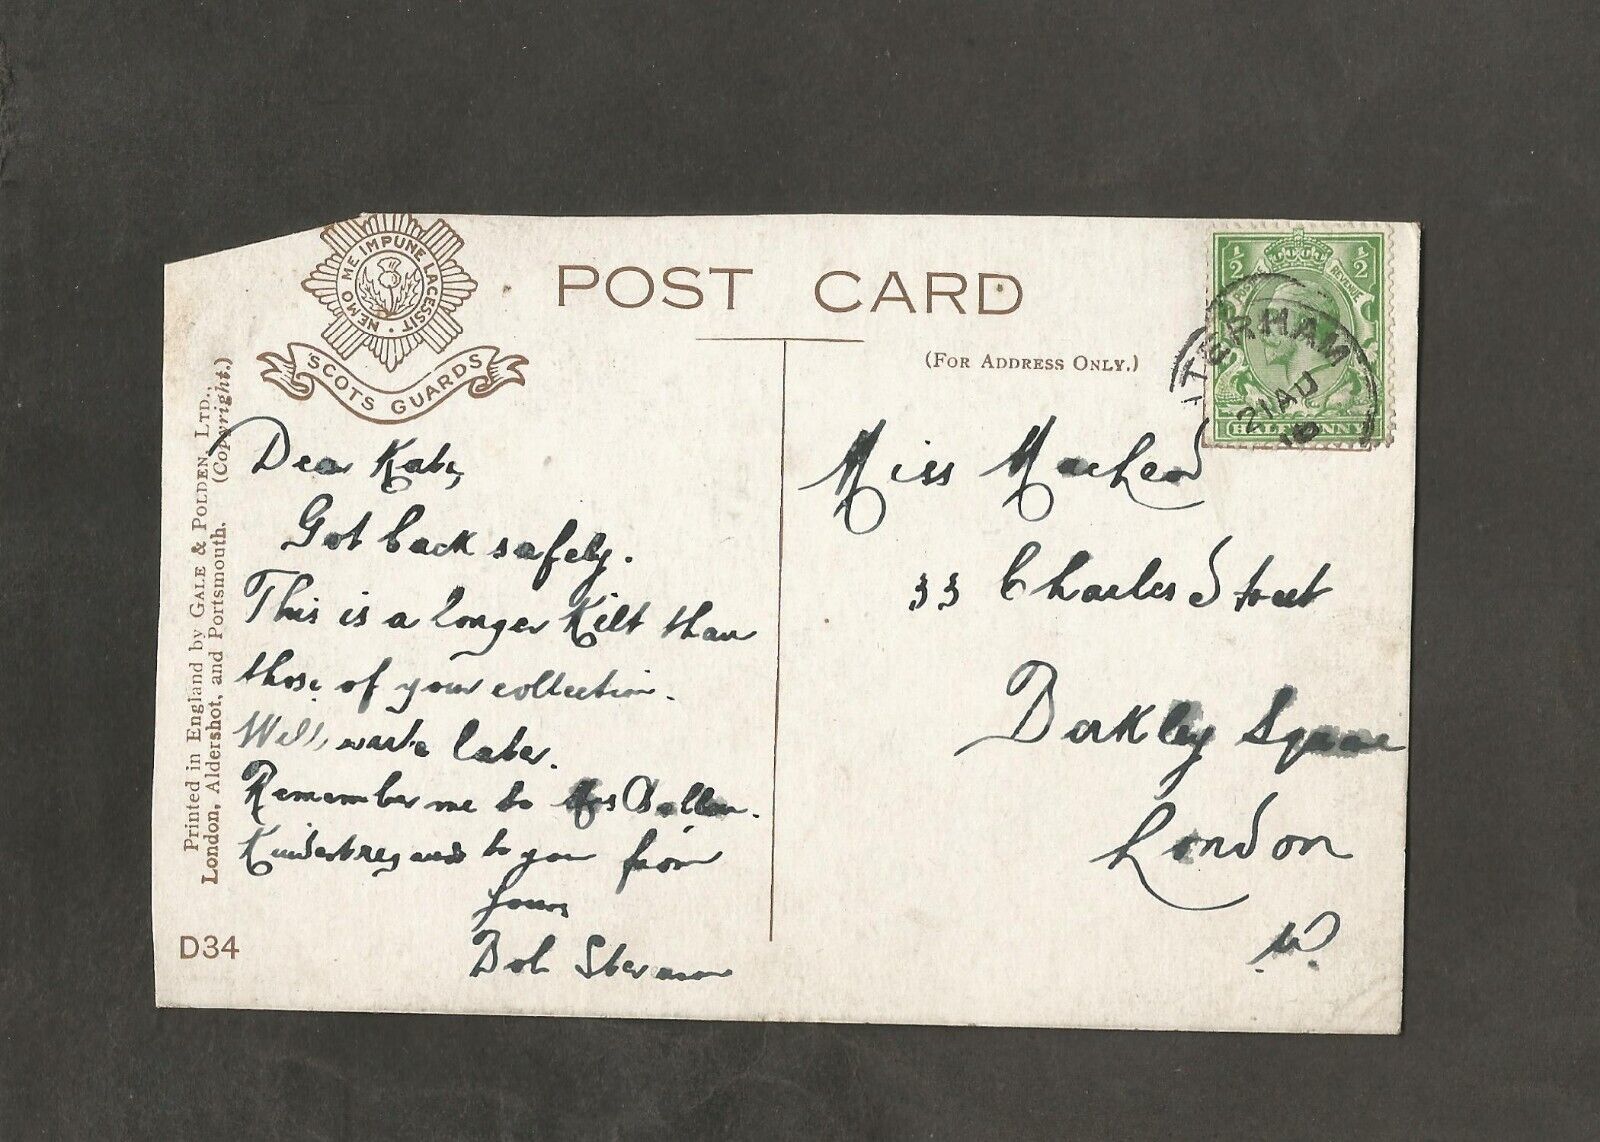 NEMO ME IMPUNE LACESSIT
SCOTS GUARDS
POST CARD
(FOR ADDRESS ONLY.)
½ ½
POSTAGE REVENUE
HALFPENNY
TERHAM
21 AU
16
Printed in England by GALE & POLDEN, LTD.,
London, Aldershot, and Portsmouth. (Copyright.)
D34
Dear Kate,
Got back safely.
This is a longer Kilt than
those of your collection.
Will write later.
Remember me to Mrs
Kindest regards to you from
Yours
Bob
Miss MacLeod
33 Charles Street
Berkley Square
London
W.